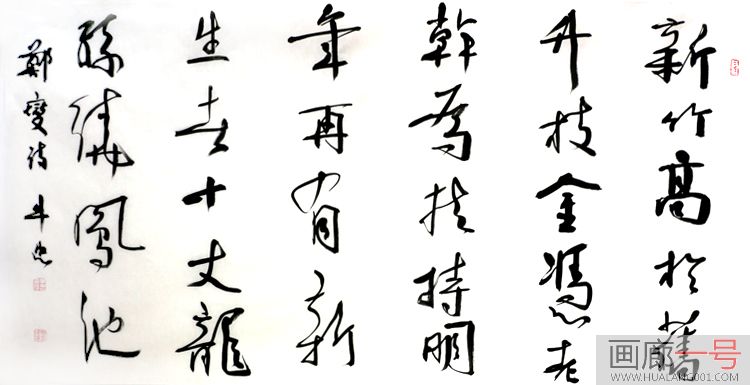 新竹高於舊
竹枝全憑老
幹為扶持明
年再有新
生者十丈龍
孫繞鳳池
鄭燮詩
画廊一号
WWW.HUALANG001.COM